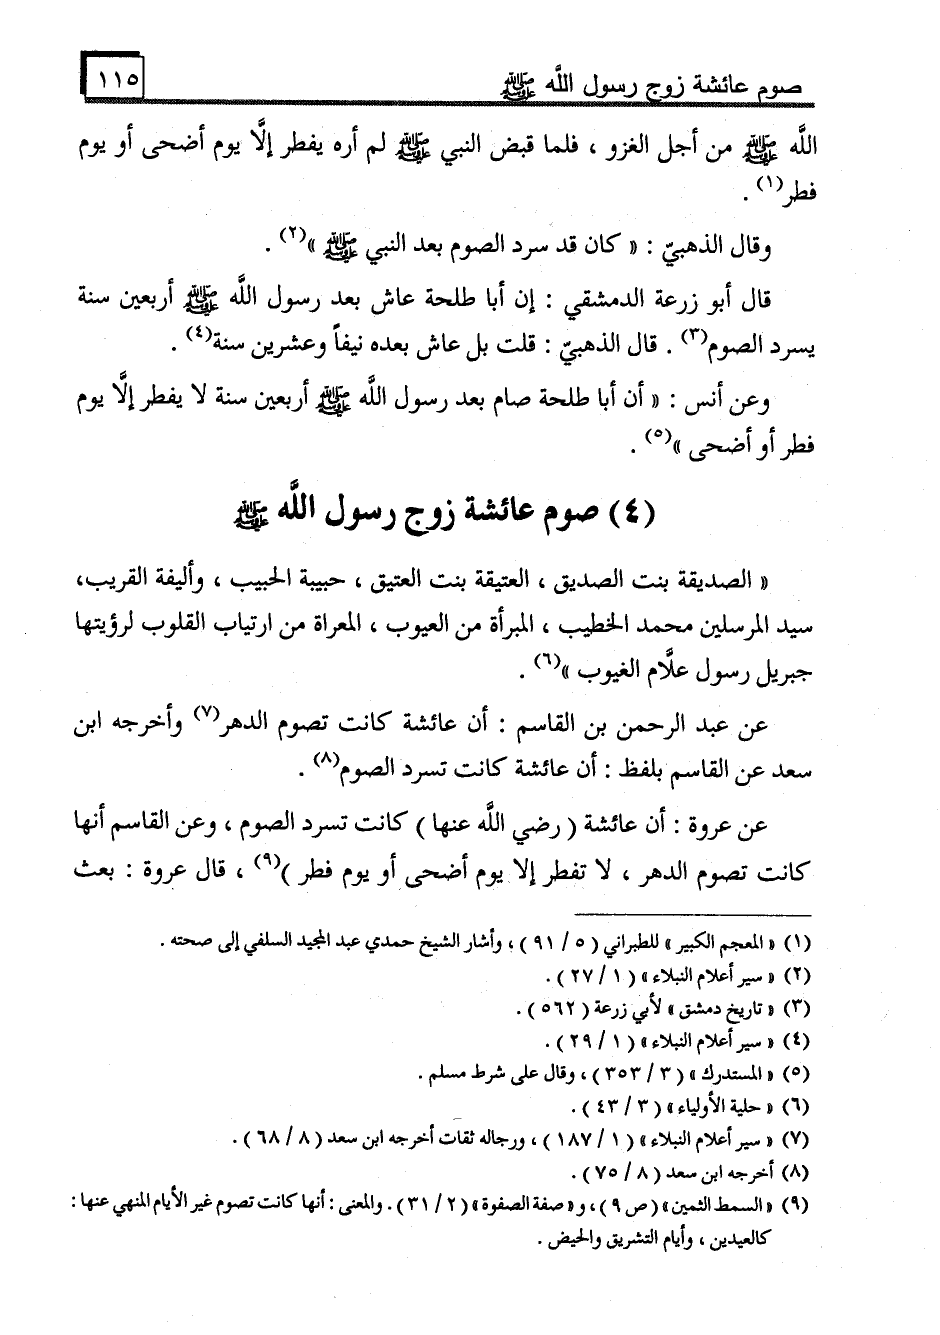 صوم عائشة زوج رسول اللَّه ﷺ ١١٥
اللَّه ﷺ من أجل الغزو ، فلما قبض النبي ﷺ لم أره يفطر إلَّا يوم أضحى أو يوم
فطر(١) .
وقال الذهبيّ : « كان قد سرد الصوم بعد النبي ﷺ »(٢) .
قال أبو زرعة الدمشقي : إن أبا طلحة عاش بعد رسول اللَّه ﷺ أربعين سنة
يسرد الصوم(٣) . قال الذهبيّ : قلت بل عاش بعده نيفاً وعشرين سنة(٤) .
وعن أنس : « أن أبا طلحة صام بعد رسول اللَّه ﷺ أربعين سنة لا يفطر إلَّا يوم
فطر أو أضحى »(٥) .
(٤) صوم عائشة زوج رسول اللَّه ﷺ
« الصديقة بنت الصديق ، العتيقة بنت العتيق ، حبيبة الحبيب ، وأليفة القريب،
سيد المرسلين محمد الخطيب ، المبرأة من العيوب ، المعراة من ارتياب القلوب لرؤيتها
جبريل رسول علَّام الغيوب »(٦) .
عن عبد الرحمن بن القاسم : أن عائشة كانت تصوم الدهر(٧) وأخرجه ابن
سعد عن القاسم بلفظ : أن عائشة كانت تسرد الصوم(٨) .
عن عروة : أن عائشة ( رضي اللَّه عنها ) كانت تسرد الصوم ، وعن القاسم أنها
كانت تصوم الدهر ، لا تفطر إلا يوم أضحى أو يوم فطر )(٩) ، قال عروة : بعث
(١) « المعجم الكبير » للطبراني ( ٥ / ٩١ ) ، وأشار الشيخ حمدي عبد المجيد السلفي إلى صحته .
(٢) « سير أعلام النبلاء » ( ١ / ٢٧ ) .
(٣) « تاريخ دمشق » لأبي زرعة ( ٥٦٢ ) .
(٤) « سير أعلام النبلاء » ( ١ / ٢٩ ) .
(٥) « المستدرك » ( ٣ / ٣٥٣ ) ، وقال على شرط مسلم .
(٦) « حلية الأولياء » ( ٣ / ٤٣ ) .
(٧) « سير أعلام النبلاء » ( ١ / ١٨٧ ) ، ورجاله ثقات أخرجه ابن سعد ( ٨ / ٦٨ ) .
(٨) أخرجه ابن سعد ( ٨ / ٧٥ ) .
(٩) « السمط الثمين » ( ص ٩ ) ، و « صفة الصفوة » ( ٢ / ٣١ ) . والمعنى : أنها كانت تصوم غير الأيام المنهي عنها :
كالعيدين ، وأيام التشريق والحيض .